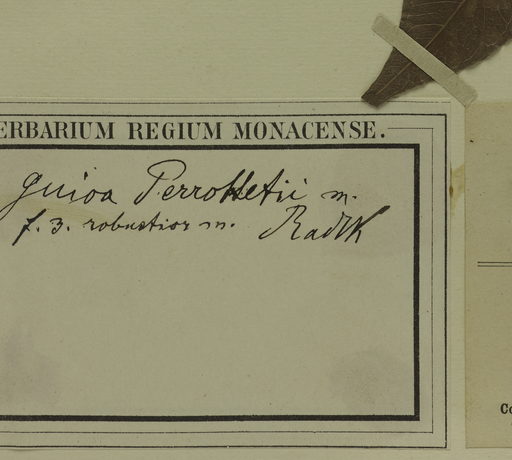 ERBARIUM REGIUM MONACENSE.
Guioa Perrottetii m.
f. 3. robustior m. Radlk
Co